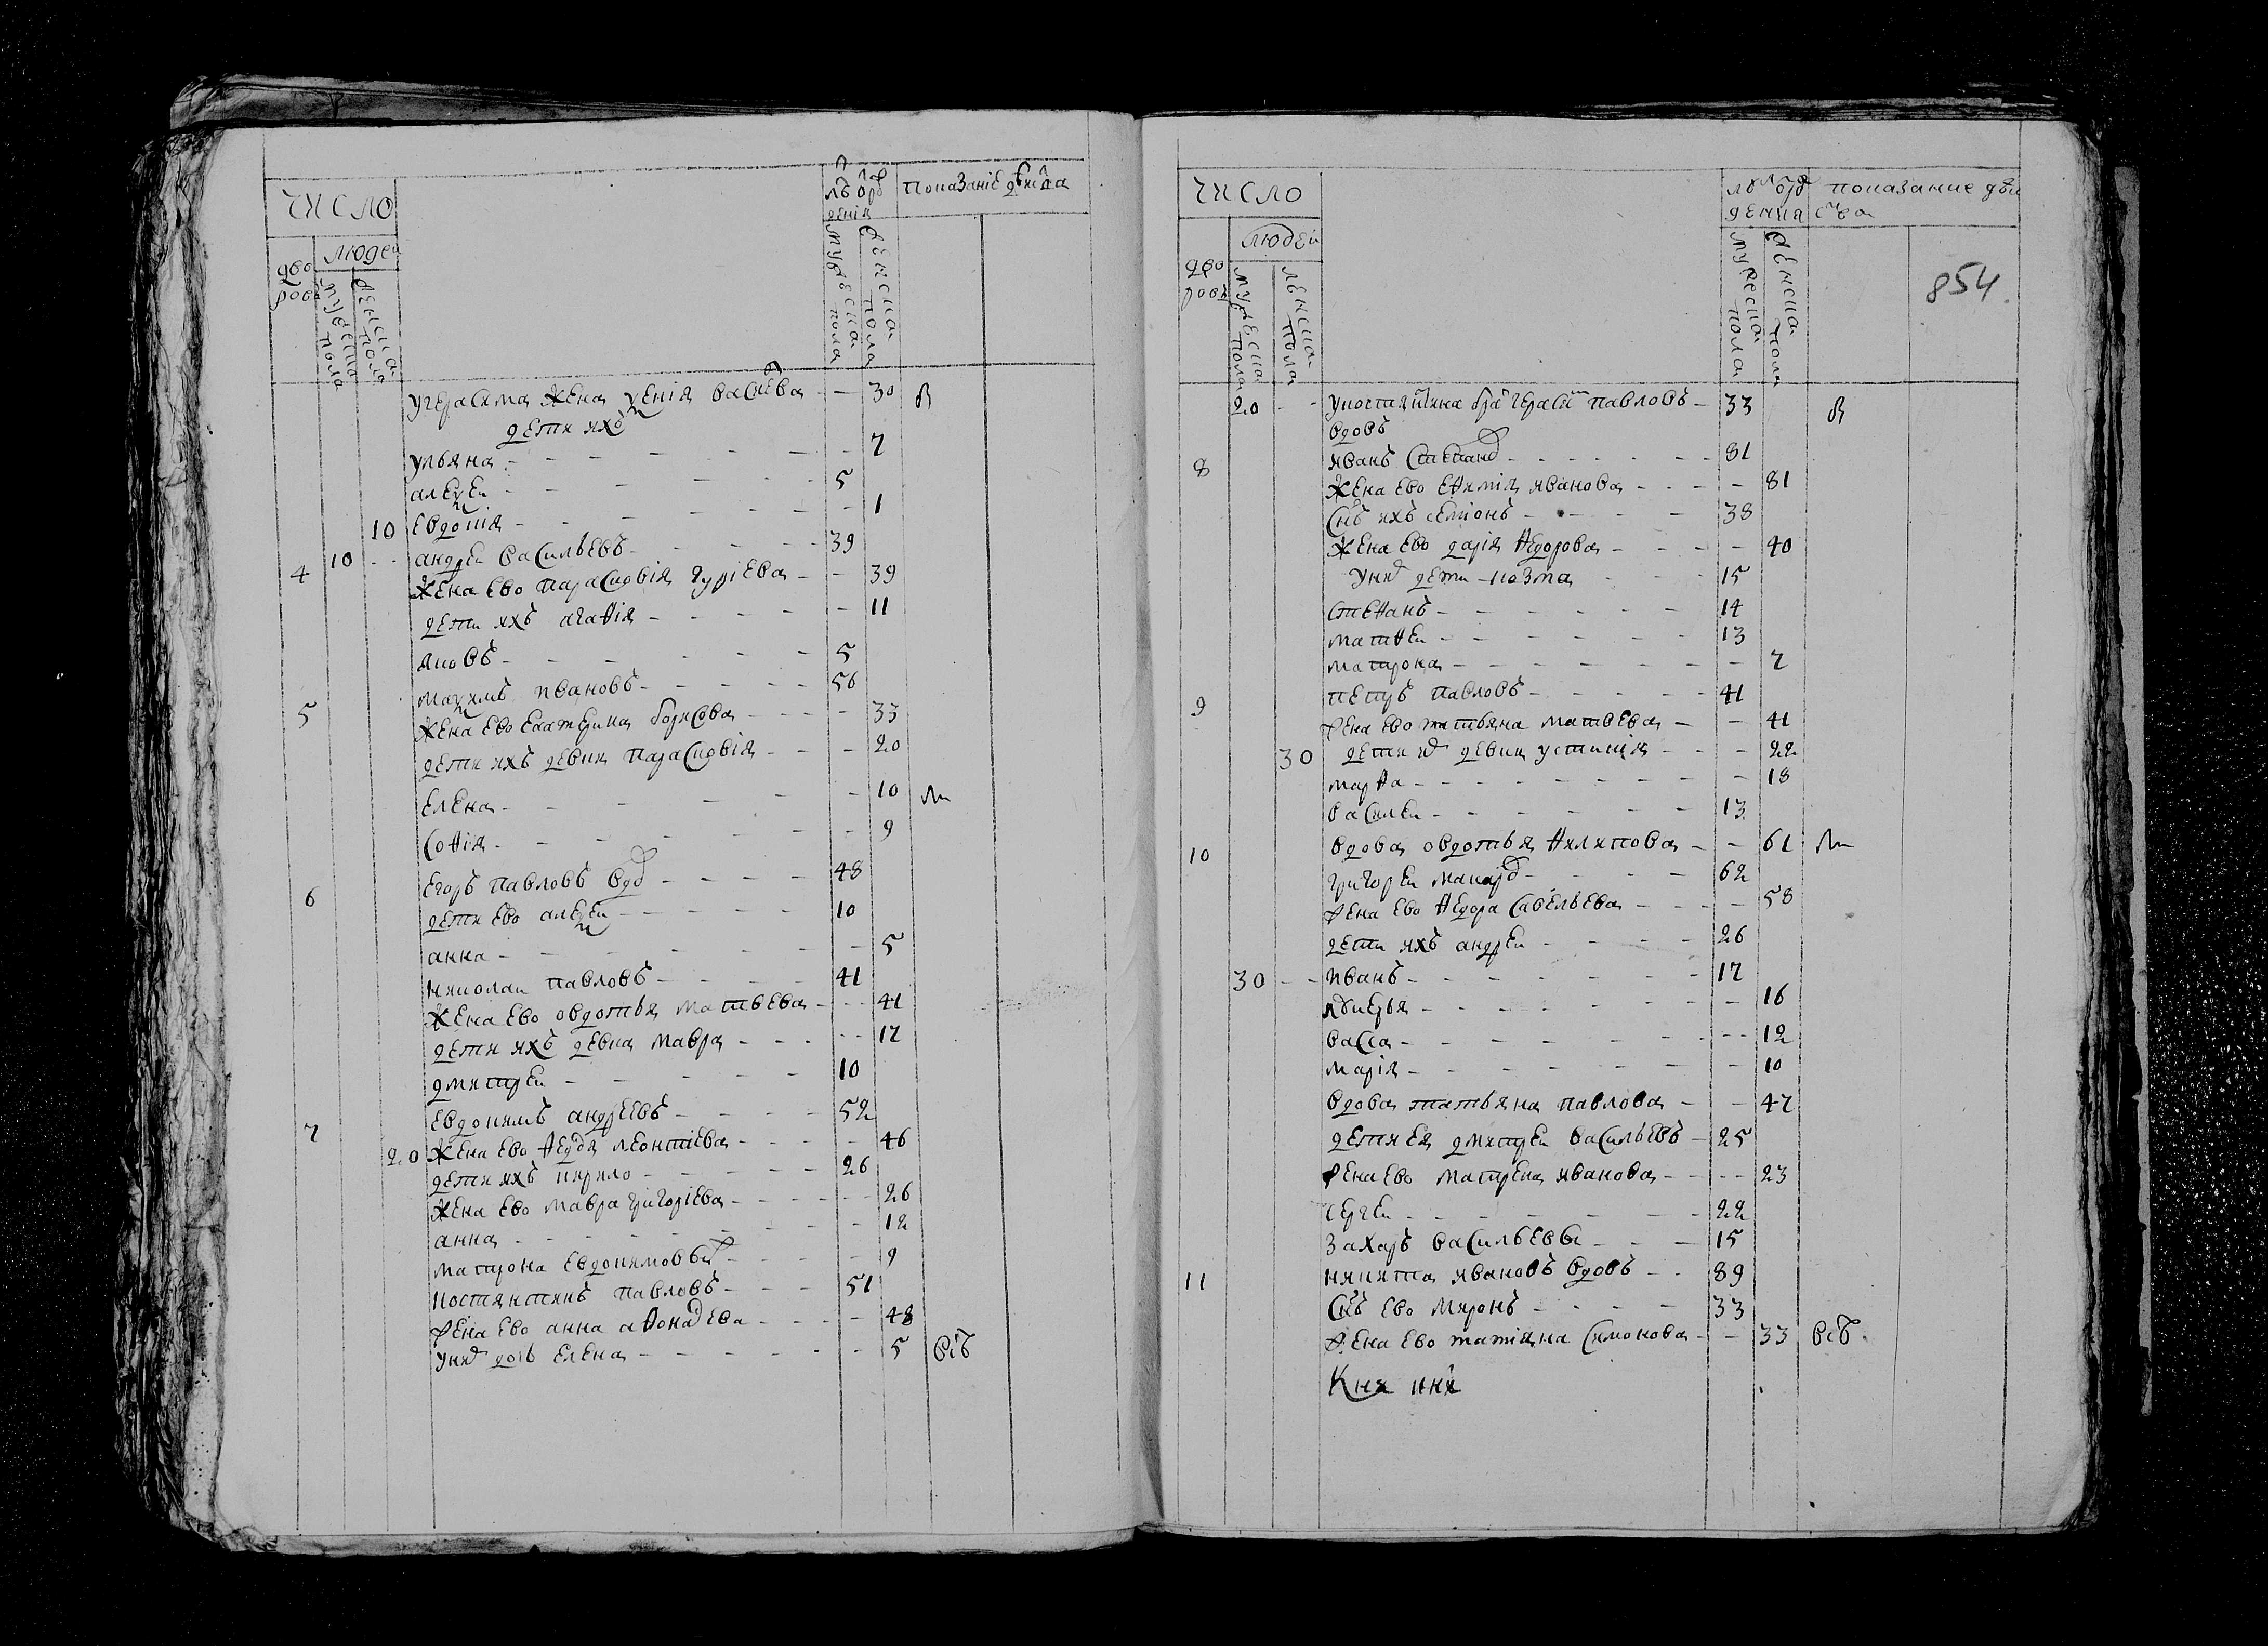 число
лѣ от рож
дения
показаніе дѣйства
дво
ровъ
людей
мужеска
пола
женска
пола
мужеска
пола
женска
пола
у герасима жена ксенія васи ева - 30
дети ихъ
ульяна - 7
алексеи - 5
10 евдокія - 1
4 10 андреи васильевъ - 39
жена ево парасковія гуріева - 39
дети ихъ агафія - 11
яковъ - 5
5 максимъ ивановъ - 56
жена ево екатерина борисова - 33
дети ихъ девки парасковія - 20
елена - 10
софія - 9
6 егоръ павловъ вдо - 48
дети ево алексеи - 10
анна - 5
николаи павловъ - 41
жена ево овдотья матвева - 41
дети ихъ девка мавра - 17
дмитреи - 10
7 евдокимъ андреевъ - 52
20 жена ево федоя леонтіева - 46
дети ихъ кирило - 26
жена ево мавра григоріева - 26
анна - 12
матрона евдокимовы - 9
костянтинъ павловъ - 51
жена ево анна афонасева - 48
у них дочь елена - 5
число
лѣ от рож
дения
показание дѣй
ства
854
дво
ровъ
людей
мужеска
пола
женска
пола
мужеска
пола
женска
пола
20 у костянтина бра герасим павловъ - 33
вдовъ
8 иванъ степано - 81
жена ево ефимія иванова - 81
снъ ихъ семіонъ - 38
жена ево дарія федорова - 40
у них дети козма - 15
стефанъ - 14
матфеи - 13
матрона - 7
9 петръ павловъ - 41
жена ево татьяна матвева - 41
30 дети их девки устинія - 22
марфа - 18
василеи - 13
10 вдова овдотья филипова - 61
григореи макаро - 62
жена ево федора савельева - 58
дети ихъ андреи - 26
30 иванъ - 17
лукерья - 16
васса - 12
марія - 10
вдова татьяна павлова - 47
дети ея дмитреи васильевъ - 25
жена ево матрена иванова - 23
сергеи - 22
захаръ васильевы - 15
11 никита ивановъ вдовъ - 89
снъ ево миронъ - 33
жена ево татіяна симонова - 33